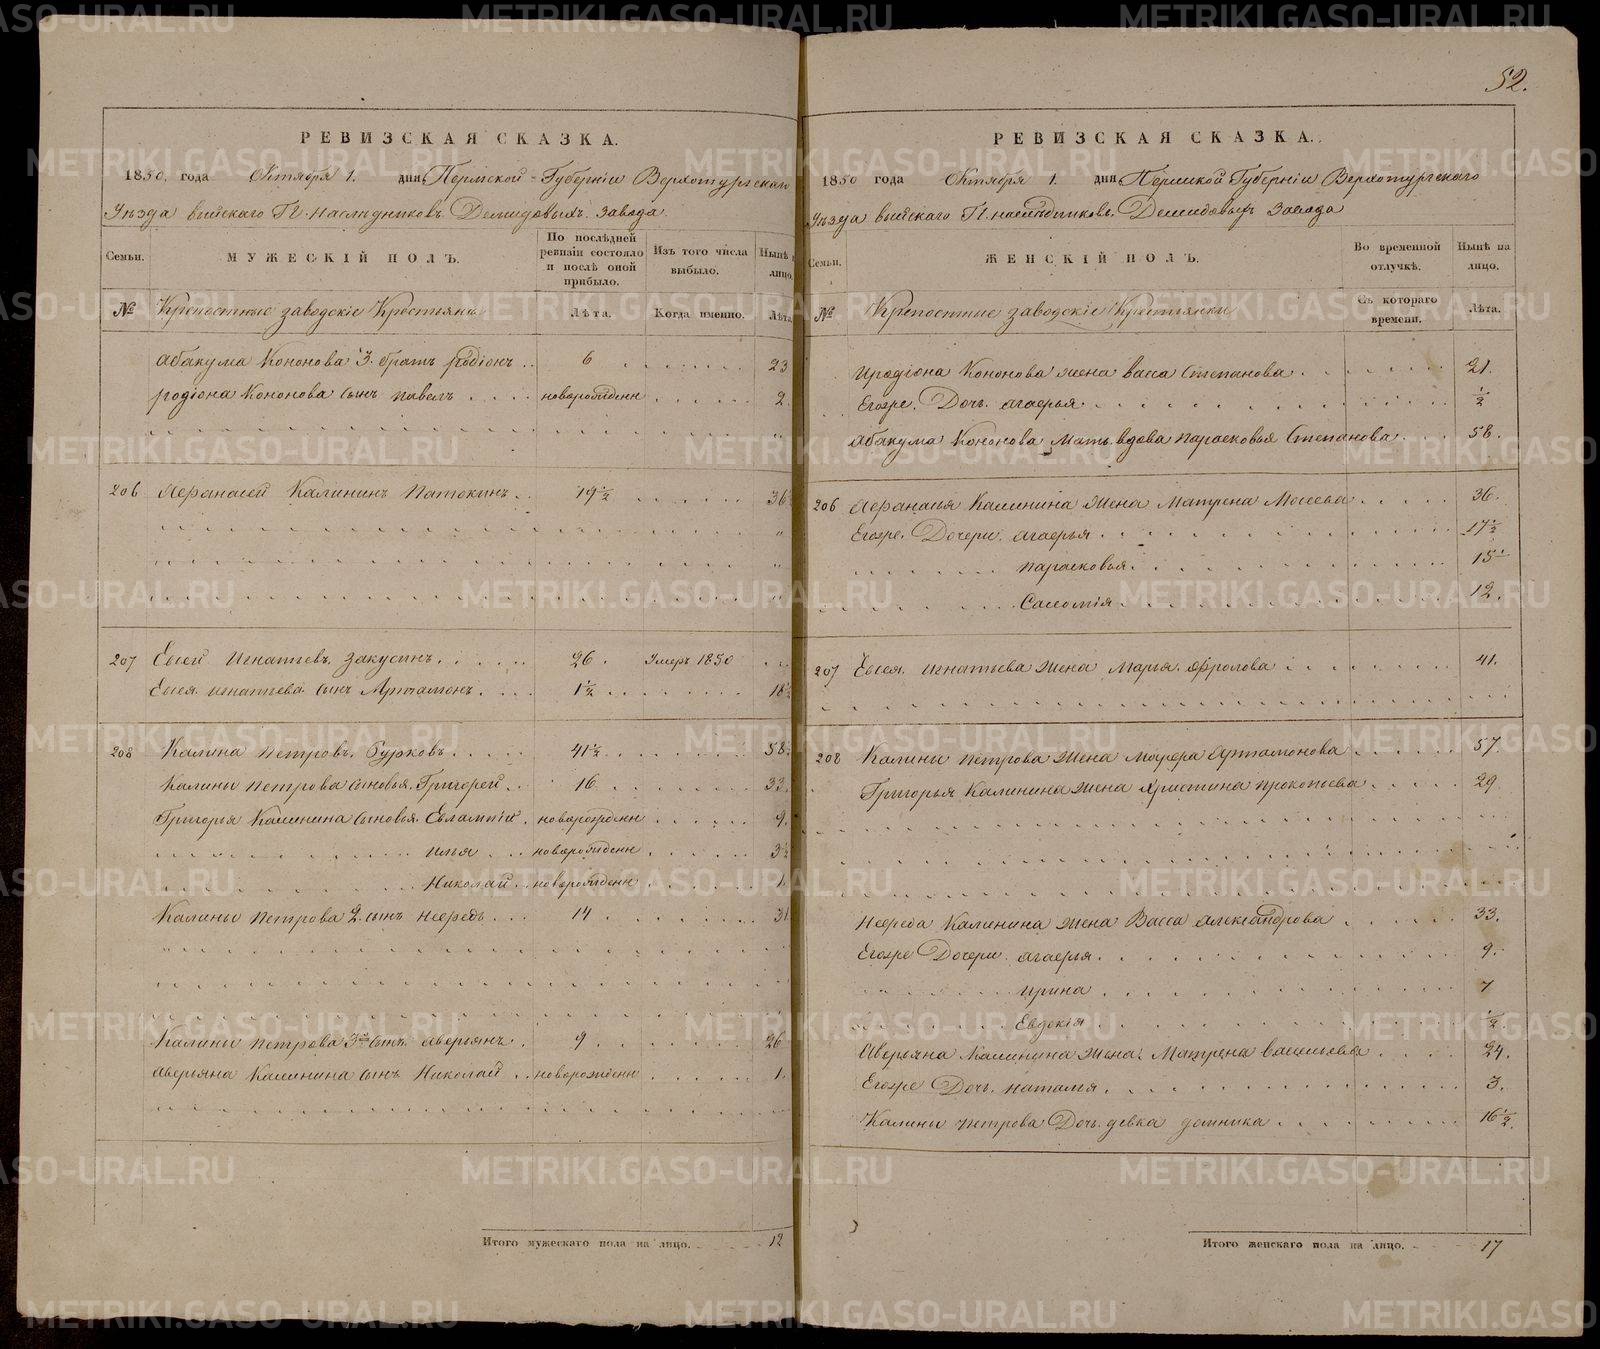 52.
РЕВИЗСКАЯ СКАЗКА.
1850 года Октября 1. дня Пермской Губернiи Верхотурскаго
Уѣзда выйскаго Гг. наслѣдниковъ Демидовыхъ завода
Семьи.
МУЖЕСКIЙ ПОЛЪ.
По послѣдней ревизiи состояло и послѣ оной прибыло.
Изъ того числа выбыло.
Нынѣ на лицо.
№ Крепостные заводскiе Крестьянъ
Лѣта. Когда именно. Лѣта.
Абакума Кононова 3. братъ родiонъ 6 23
родiона Кононова сынъ павелъ новорожденн 2.
206 Афанасей Калининъ Патокинъ 19½ 36
207 Евсей Игнатьевъ Закусинъ 26. Умеръ 1850
Евсея игнатьева сынъ Артамонъ 1½ 18½
208 Калина Петровъ Бурковъ 41½ 58
Калины петрова сыновья Григорей 16 33
Григорья Калинина сыновья Евлампiй новорожденн 9.
илья новорожденн 3½
Николай новорожденн 1
Калины Петрова 2. сынъ неѳредъ 14 31
Калины петрова 3й сынъ аверьянъ 9 26
аверьяна Калинина сынъ Николай новорожденн 1.
Итого мужескаго пола на лицо. 12
РЕВИЗСКАЯ СКАЗКА.
1850 года Октября 1. дня Пермской Губернiи Верхотурскаго
Уѣзда выйскаго Гг. наслѣдниковъ Демидовыхъ завода
Семьи.
ЖЕНСКIЙ ПОЛЪ.
Во временной отлучкѣ.
Нынѣ на лицо.
№ Крепостные заводскiе Крестьянки
Съ котораго времени. Лѣта.
Иродiона Кононова жена васса Степанова 21.
Егоже Дочь агафья ½
Абакума Кононова мать вдова парасковья Степанова 58.
206 Афанасья Калинина жена Матрена Мосеева 36.
Егоже Дочери агафья 17½
парасковья 15
Саломiя 12.
207 Евсея игнатьева жена Марья Фролова 41.
208 Калины петрова жена Марфа Артамонова 57.
Григорья Калинина жена Христина прокопьева 29
Калинина жена Васса александрова 33.
Егоже Дочери агафья 9.
ирина 7
Евдокiя ½
Аверьяна Калинина жена Матрена васильева 24.
Егоже Дочь наталья 3.
Калины петрова Дочь девка домника 16½
Итого женскаго пола на лицо. 17
METRIKI.GASO-URAL.RU